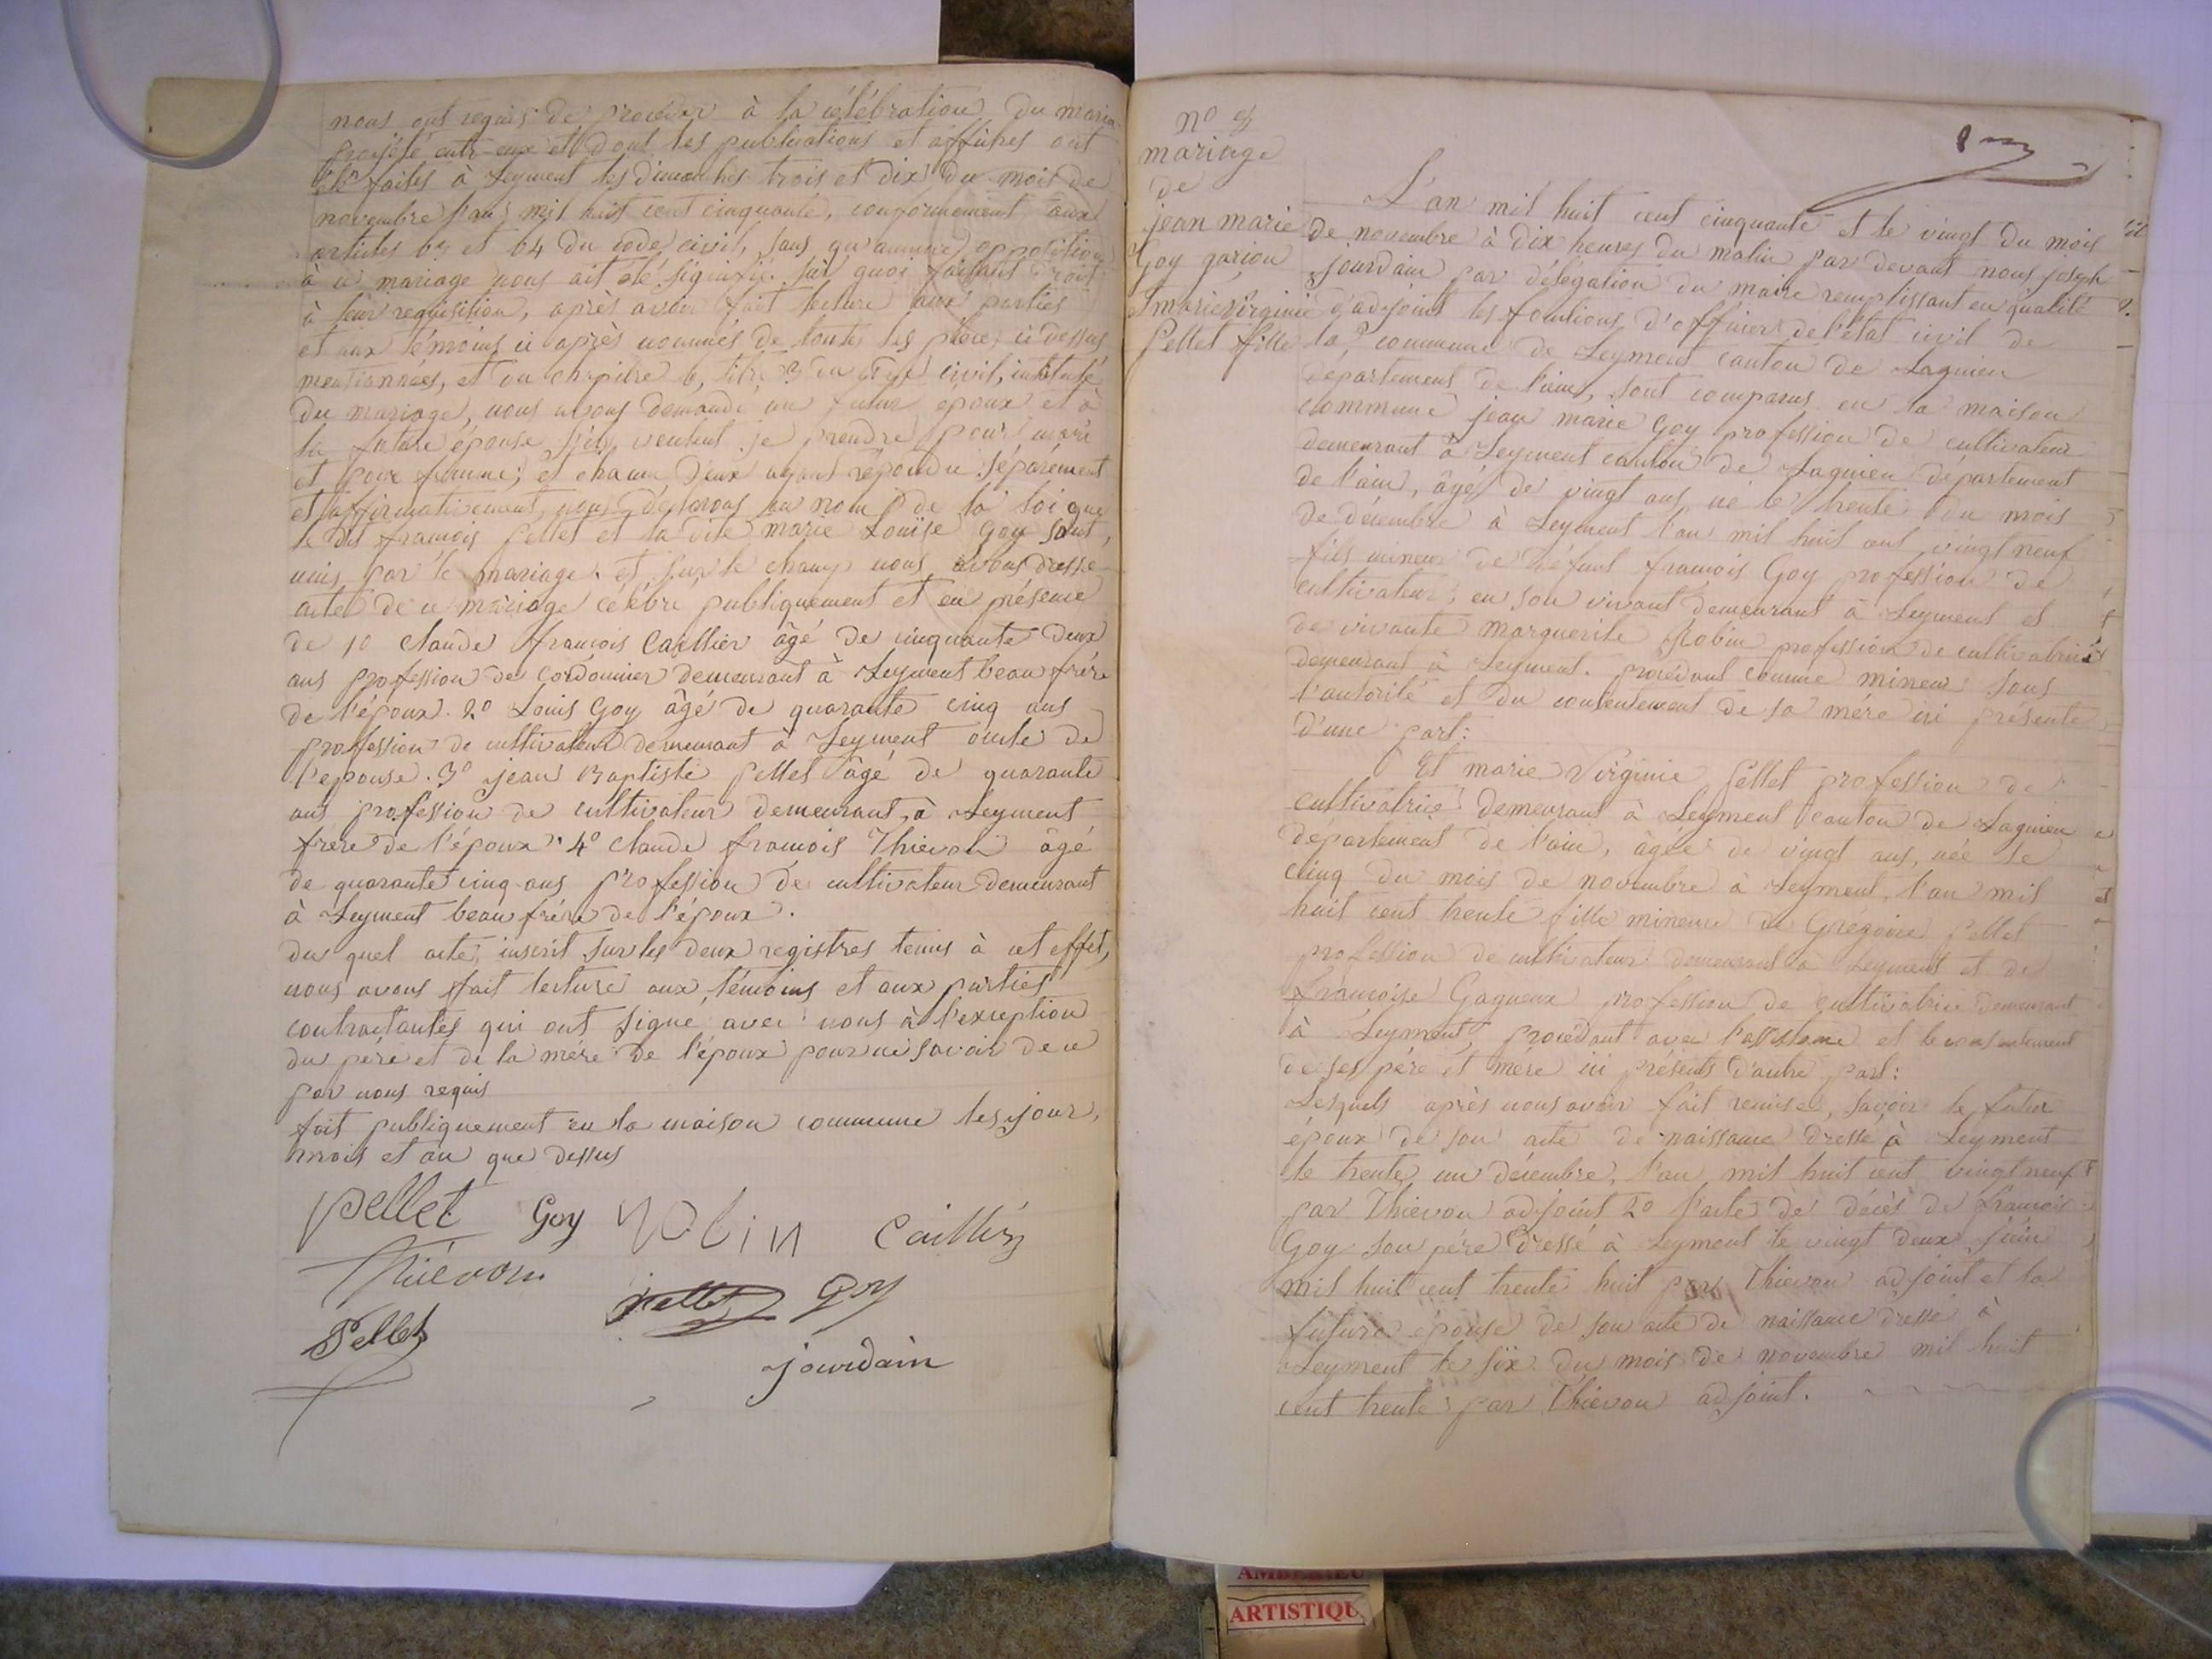 nous ont requis de proceder à la célébration du maria
projeté entr eux et dont les publications et affiches ont
été faites à Leyment les dimanches trois et dix du mois de
novembre l'an mil huit cent cinquante, conformément aux
articles 63 et 64 du code civil, sans qu'aucune opposition
à ce mariage nous ait été signifié. sur quoi faisant droit
à leur requisition, après avoir fait lecture aux parties
et aux témoins ci après nommés de toutes les pièces ci dessus
mentionnées, et du chapitre 6, titre du civil, intitulé
du mariage, nous avons demandé au futur epoux et à
la future épouse s'ils veulent se prendre pour mari
et pour femme; et chacun d'eux ayant répondu séparément
et affirmativement, nous déclarons au nom de la loi que
le dit françois Pellet et la dite marie Louise Goy sont,
unis par le mariage. et sur le champ nous avons dressé
acte de ce mariage célébré publiquement et en présence
de 1o claude françois Caillier âgé de cinquante deux
ans profession de cordonnier demeurant à Leyment beau frère
de l'époux. 2o Louis Goy âgé de quarante cinq ans
profession de cultivateur demeurant à Leyment oncle de
l'epouse. 3o jean Baptiste Pellet âgé de quarante
ans profession de cultivateur demeurant, à Leyment
frere de l'époux. 4o claude françois Thievon âgé
de quarante cinq ans profession de cultivateur demeurant
à Leyment beau frère de l'époux.
du quel acte, inscrit sur les deux registres tenus à cet effet,
nous avons fait lecture aux témoins et aux parties
contractantes qui ont signé avec nous à l'exception
du père et de la mère de l'époux pour ne savoir de ce
par nous requis
fait publiquement en la maison commune les jour,
mois et an que dessus
Pellet Goy Robin Caillier
Thiévon
Pellet Goy
Pellet
jourdain
No
mariage
de
jean marie
Goy garçon
marie virginie
Pellet fille
L'an mil huit cent cinquante et le vingt du mois
de novembre à dix heures du matin par devant nous joseph
jourdain par délégation du maire remplissant en qualité
d'adjoint les fonctions d'officier de l'état civil de
la commune de Leyment canton de Lagnieu
département de l'ain, sont comparus en la maison
commune jean marie Goy profession de cultivateur
demeurant à Leyment canton de Lagnieu département
de l'ain, âgé de vingt ans, né le trente du mois
de décembre à Leyment l'an mil huit cent vingt neuf
fils mineur de défunt françois Goy profession de
cultivateur, en son vivant demeurant à Leyment et
de vivante marguerite Robin profession de cultivatrice
demeurant à Leyment. procédant comme mineur sous
l'autorité et du consentement de sa mére ici présente
d'une part:
Et marie Virginie Pellet profession de
cultivatrice demeurant à Leyment canton de Lagnieu
département de l'ain, âgée de vingt ans, née le
cinq du mois de novembre à Leyment, l'an mil
huit cent trente fille mineure de Grégoire Pellet
profession de cultivateur demeurant à Leyment et de
françoise Gagneux profession de cultivatrice demeurant
à Leyment, procédant avec l'assistance et le consentement
de ses pére et mére ici présents d'autre part:
Lesquels après nous avoir fait remise, savoir le futur
époux de son acte de naissance dressé à Leyment
le trente un décembre, l'an mil huit cent vingt neuf
par Thievon adjoint 2o l'acte de décès de françois
Goy son pére dressé à Leyment le vingt deux juin
mil huit cent trente huit par Thievon adjoint et la
future épouse de son acte de naissance dressé à
Leyment le six du mois de novembre mil huit
cent trente par Thievon adjoint.
AMBERIEU
ARTISTIQU